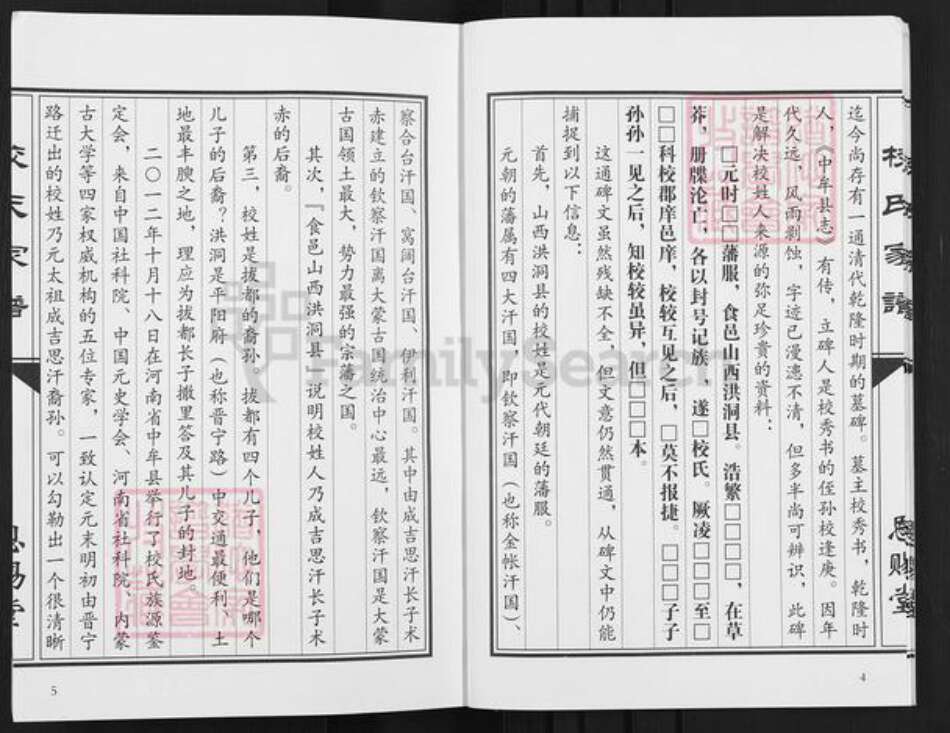 校氏家谱
恩赐堂
迄今尚存有一通清代乾隆时期的墓碑。墓主校秀书，乾隆时
人，《中牟县志》有传，立碑人是校秀书的侄孙校逢庚。因年
代久远，风雨剥蚀，字迹已漫漶不清，但多半尚可辨识，此碑
是解决校姓人来源的弥足珍贵的资料：
□元时□□藩服，食邑山西洪洞县。浩繁□□□□，在草
莽，册牒沦亡，各以封号记族，遂□校氏。厥凌□□□至□
□□科校郡庠邑庠，校较互见之后，□莫不报捷。□□□子子
孙孙一见之后，知校较虽异，但□□□本。
这通碑文虽然残缺不全，但文意仍然贯通，从碑文中仍能
捕捉到以下信息：
首先，山西洪洞县的校姓是元代朝廷的藩服。
元朝的藩属有四大汗国，即钦察汗国（也称金帐汗国）、
4
察合台汗国、窝阔台汗国、伊利汗国。其中由成吉思汗长子术
赤建立的钦察汗国离大蒙古国统治中心最远，钦察汗国是大蒙
古国领土最大，势力最强的宗藩之国。
其次，「食邑山西洪洞县」说明校姓人乃成吉思汗长子术
赤的后裔。
第三，校姓是拔都的裔孙。拔都有四个儿子，他们是哪个
儿子的后裔？洪洞是平阳府（也称晋宁路）中交通最便利、土
地最丰腴之地，理应为拔都长子撒里答及其儿子的封地。
二〇一二年十月十八日在河南省中牟县举行了校氏族源鉴
定会，来自中国社科院、中国元史学会、河南省社科院、内蒙
古大学等四家权威机构的五位专家，一致认定元末明初由晋宁
路迁出的校姓乃元太祖成吉思汗裔孙。可以勾勒出一个很清晰
校氏家谱
恩赐堂
5
FamilySearch